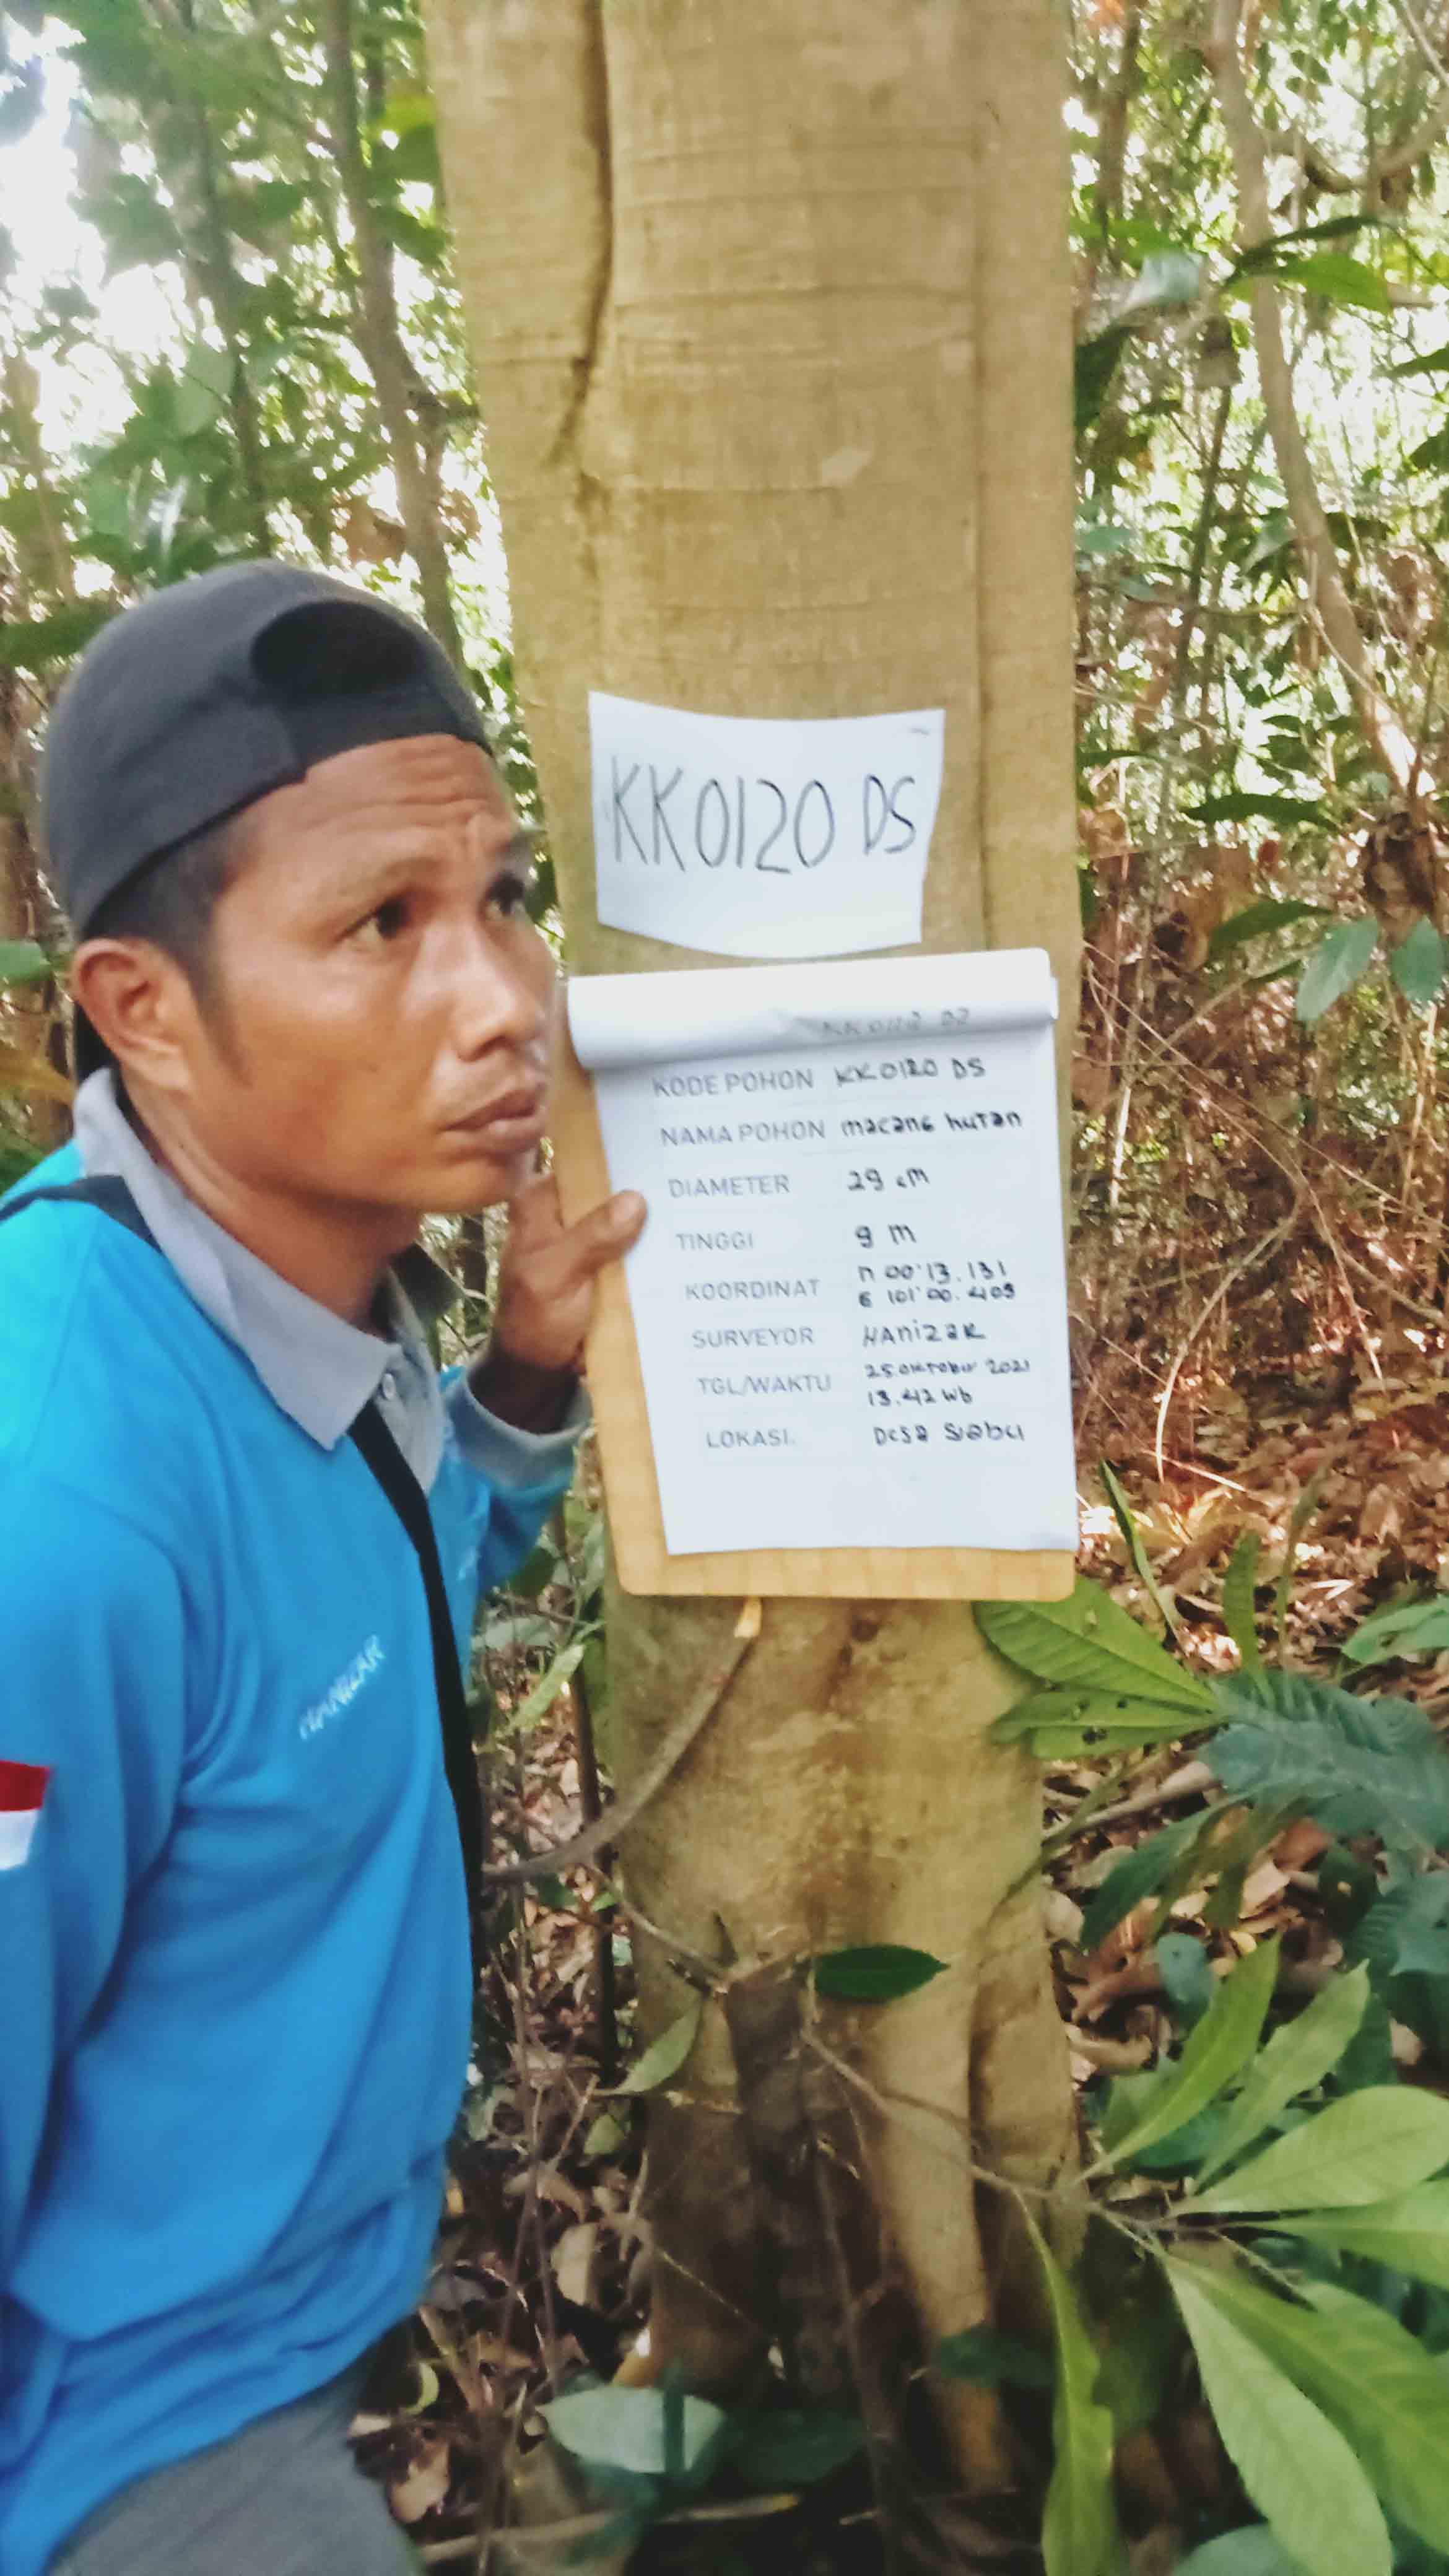 KK0120 DS
KODE POHON KK0120 DS
NAMA POHON macang hutan
DIAMETER 29 cm
TINGGI 9 m
KOORDINAT n 00°13.131
E 101°00.409
SURVEYOR HAnizar
TGL/WAKTU 25 oktober 2021
13.42 Wb
LOKASI. Desa Siabu
HANIZAR